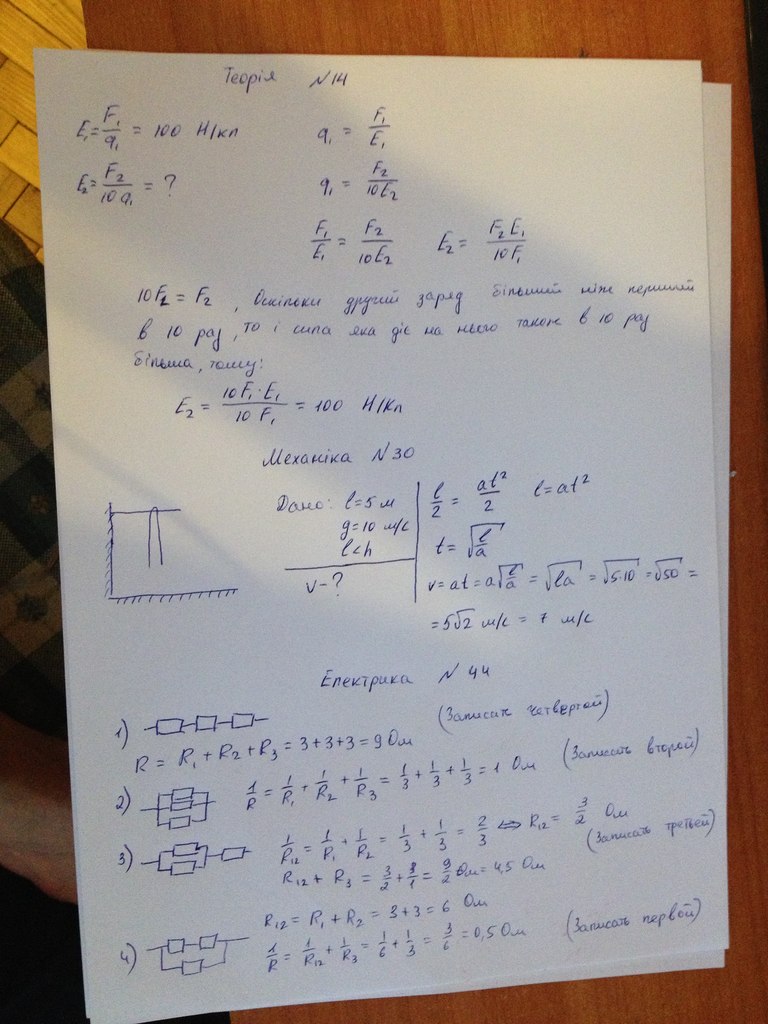 Теорія N14
E₁ = F₁/q₁ = 100 Н/кл q₁ = F₁/E₁
E₂ = F₂/10q₁ = ? q₁ = F₂/10E₂
F₁/E₁ = F₂/10E₂ E₂ = F₂E₁/10F₁
10F₁ = F₂, Оскільки другий заряд більший ніж перший
в 10 раз, то і сила яка діє на нього також в 10 раз
більша, тому:
E₂ = 10F₁·E₁/10F₁ = 100 Н/Кл
Механіка N30
Дано: l=5 м l/2 = at²/2 l = at²
g=10 м/с
l<h t = √(l/a)
v-? v = at = a√(l/a) = √(la) = √(5·10) = √50 =
= 5√2 м/с = 7 м/с
Електрика N 44
1) (Записать четвертой)
R = R₁ + R₂ + R₃ = 3+3+3 = 9 Ом
2) 1/R = 1/R₁ + 1/R₂ + 1/R₃ = 1/3 + 1/3 + 1/3 = 1 Ом (Записать второй)
3) 1/R₁₂ = 1/R₁ + 1/R₂ = 1/3 + 1/3 = 2/3 ⇔ R₁₂ = 3/2 Ом
(Записать третьей)
R₁₂ + R₃ = 3/2 + 3/1 = 9/2 Ом = 4,5 Ом
R₁₂ = R₁ + R₂ = 3+3 = 6 Ом
4) 1/R = 1/R₁₂ + 1/R₃ = 1/6 + 1/3 = 3/6 = 0,5 Ом (Записать первой)